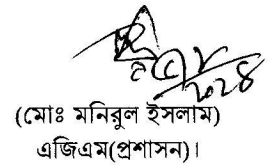 (মোঃ মনিরুল ইসলাম)
এজিএম(প্রশাসন)।